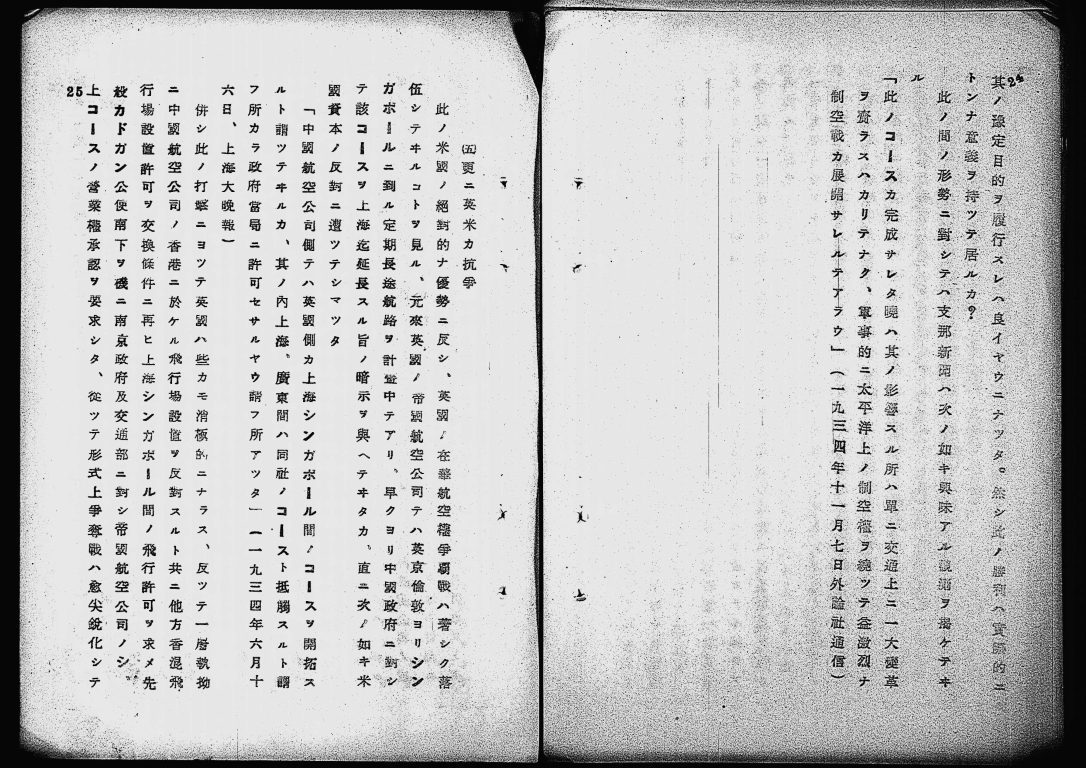 24
其ノ豫定目的ヲ履行スレハ良イヤウニナツタ。然シ此ノ勝利ハ實際的ニ
トンナ意義ヲ持ツテ居ルカ?
此ノ間ノ形勢ニ對シテハ支那新聞ハ次ノ如キ興味アル觀測ヲ揚ケテヰ
ル
「此ノコースカ完成サレタ曉ハ其ノ影響スル所ハ單ニ交通上ニ一大變革
ヲ齎ラスハカリテナク、軍事的ニ太平洋上ノ制空權ヲ繞ツテ益激烈ナ
制空戰カ展開サレルテアラウ」(一九三四年十一月七日外論社通信)
㈤更ニ英米カ抗爭
此ノ米國ノ絕對的ナ優勢ニ反シ、英國ノ在華航空權爭覇戰ハ著シク落
伍シテヰルコトヲ見ル、元來英國ノ帝國航空公司テハ英京倫敦ヨリシン
ガポールニ到ル定期長途航路ヲ計畫中テアリ、早クヨリ中國政府ニ對シ
テ該コースヲ上海迄延長スル旨ノ暗示ヲ與ヘテヰタカ、直ニ次ノ如キ米
國資本ノ反對ニ遭ツテシマツタ
「中國航空公司側テハ英國側カ上海シンガポール間ノコースヲ開拓ス
ルト謂ツテヰルカ、其ノ內上海、廣東間ハ同社ノコースト抵觸スルト謂
フ所カラ政府當局ニ許可セサルヤウ請フ所アツタ」(一九三四年六月十
六日、上海大晚報)
併シ此ノ打擊ニヨツテ英國ハ些カモ消極的ニナラス、反ツテ一層執拗
ニ中國航空公司ノ香港ニ於ケル飛行場設置ヲ反對スルト共ニ他方香港飛
行場設置許可ヲ交換條件ニ再ヒ上海シンガポール間ノ飛行許可ヲ求メ先
般カドガン公使南下ヲ機ニ南京政府及交通部ニ對シ帝國航空公司ノシ
上コースノ營業權承認ヲ要求シタ、從ツテ形式上爭奪戰ハ愈尖銳化シテ
25